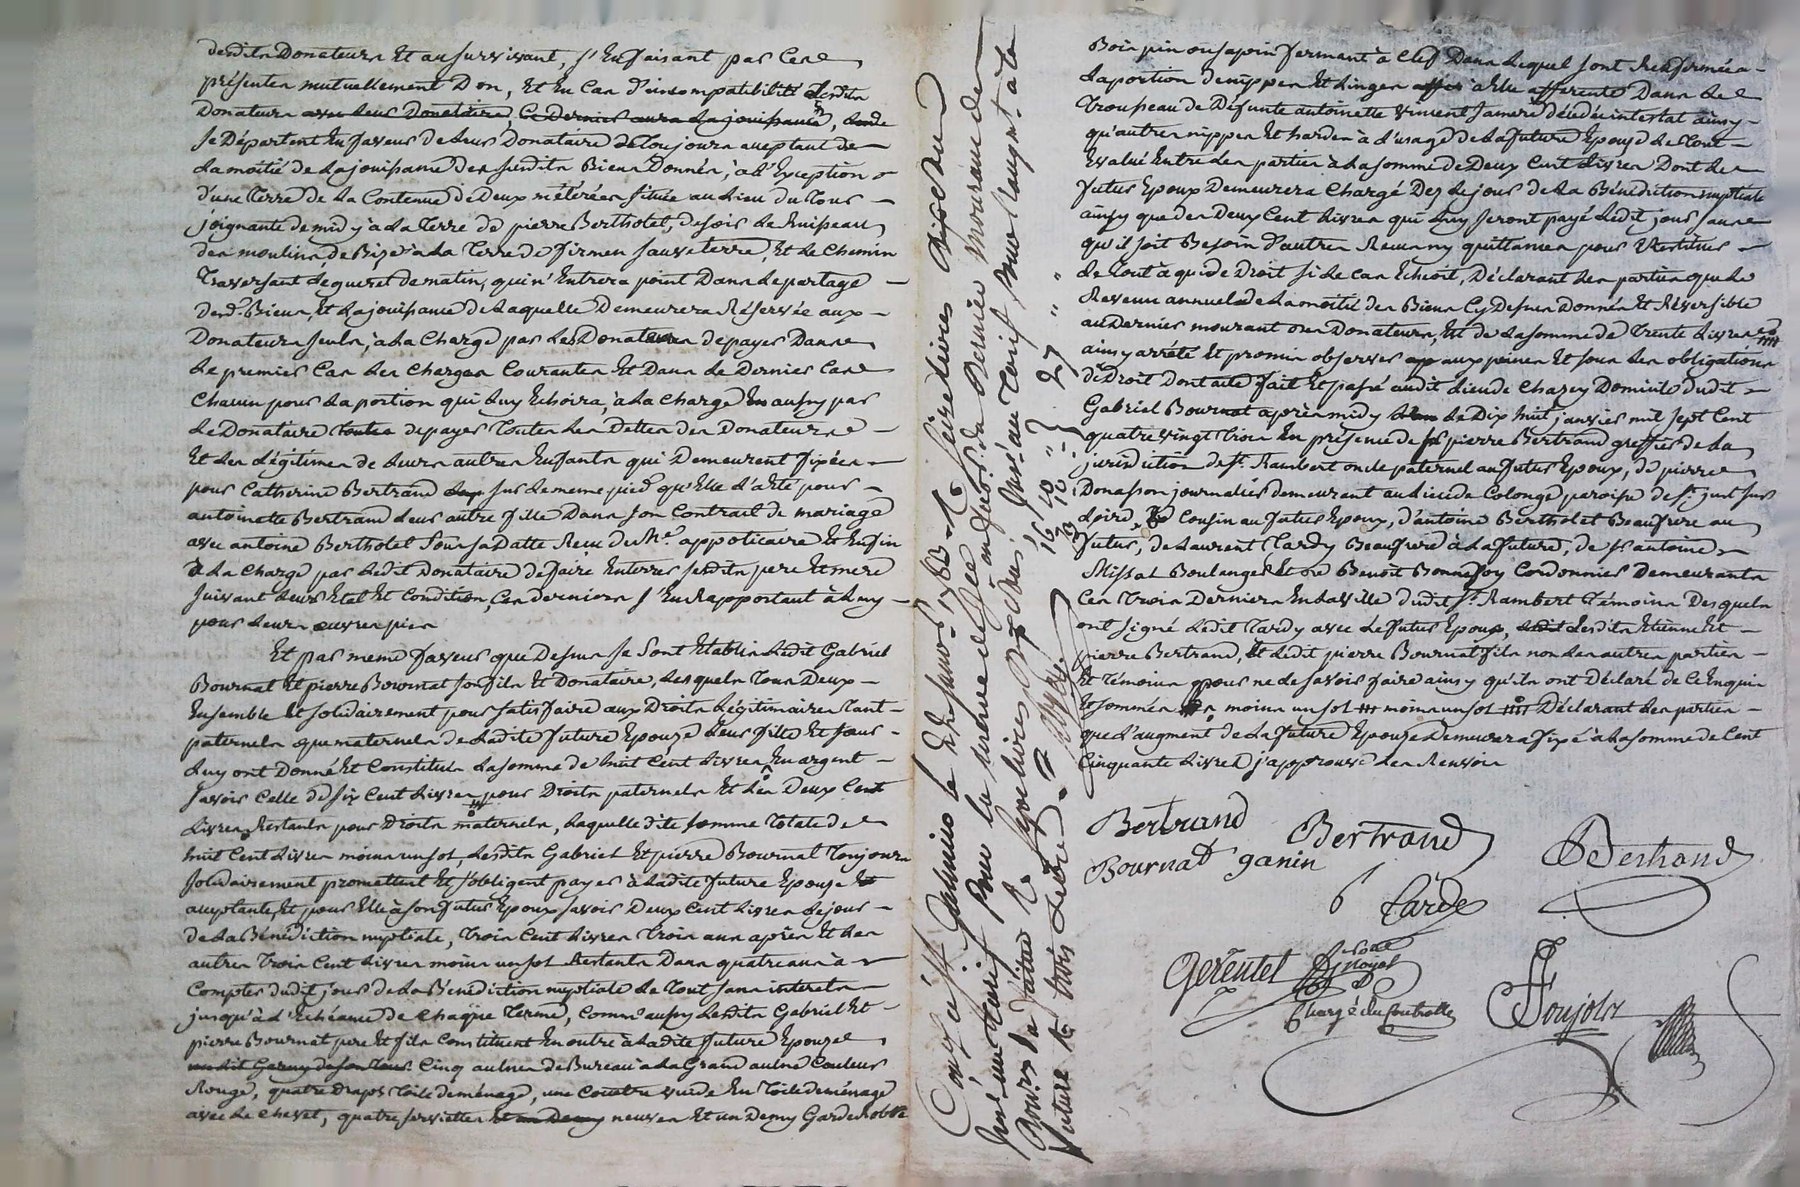 desdits Donateurs Et au survivant, s'En faisant par Ces
présentes mutuellement Don, Et En Cas d'incompatibilité Lesdits
Donateurs avec Leur Donataire, Ce dernier aura La jouissance,
se Départent En faveur de Leur Donataire Toujours acceptant de
La moitié de La jouissance des susdits Biens Donnés, à L'Exception
d'une Terre de La Contenue de Deux métérées située au Lieu du Tour
joignante de midy à La Terre de pierre Berthollet, de soir Le Ruisseau
des moulins, de Bize à La Terre de firmin sauveterre, Et Le Chemin
Traversant Lequeret de matin, qui n'Entrera point Dans Le partage
desd. Biens, Et La jouissance de Laquelle Demeurera Réservée aux
Donateurs seuls, à La Charge par Les Donateurs de payer Dans
Le premier Cas Les Charges Courantes Et Dans Le Dernier Cas
Chacun pour La portion qui Luy Echoira, à La Charge En aussy par
Le Donataire toutes de payer Toutes Les Dettes des Donateurs
Et Les Légitimes de Leurs autres Enfants qui Demeurent fixées
pour Catherine Bertrand sur Le meme pied qu'Elle L'a été pour
antoinette Bertrand Leur autre fille Dans son Contract de mariage
avec antoine Berthollet sous sa Datte Reçu de Me. appoticaire Et Enfin
à La Charge par Ledit Donataire de faire Enterrer sesdits pere Et mere
suivant Leur Etat Et Condition, Ces derniers s'En Rapportant à Luy
pour Leurs œuvres pies
Et par meme faveur que Dessus se sont Etablis Ledit Gabriel
Bournat Et pierre Bournat son fils Et Donataire, Lesquels Tous Deux
Ensemble Et solidairement pour satisfaire aux Droits Légitimaires Tant
paternels que maternels de Ladite future Epouze Leur fille Et sœur
Luy ont Donné Et Constitué La somme de huit Cent Livres En argent
savoir Celle de six Cent Livres pour Droits paternels Et Les Deux Cent
Livres Restants pour Droits maternels, Laquelle dite somme Totale de
huit Cent Livres moins un sol, Lesdits Gabriel Et pierre Bournat Toujours
solidairement promettent Et s'obligent payer à Ladite future Epouze Et
acceptante, Et pour Elle à son futur Epoux savoir Deux Cent Livres Le jour
de La Bénédiction nuptiale, Trois Cent Livres Trois ans après Et Les
autres Trois Cent Livres moins un sol Restants Dans quatre ans à
Compter dudit jour de La Bénédiction nuptiale Le Tout sans interets
jusqu'à L'Echéance de Chaque Terme, Comm'aussy Lesdits Gabriel Et
pierre Bournat pere Et fils Constituent En outre à Ladite future Epouze
un Lit Garny de son Tour Cinq aulnes de Bureau à La Grand aulne Couleur
Rouge, quatre draps Toile de ménage, une Couttre vuide En Toile de ménage
avec Le Chevet, quatre serviettes Et un Demy neuves Et un Demy Garderobbe
Conté à st Galmier le 22 janvier 1783
future
Bois pin ou sapin fermant à Clef Dans Lequel sont Renfermées
La portion de nippes Et Linges à Elle afferente Dans Le
Trousseau de Défunte antoinette viment sa mere Décédée intestat ainsy
qu'autres nippes Et hardes à L'usage de La future Epouze Le Tout
Evalué Entre Les parties à La somme de Deux Cent Livres Dont Le
futur Epoux Demeurera Chargé Dez Le jour de La Bénédiction nuptiale
ainsy que des Deux Cent Livres qui Luy seront payé Ledit jour sans
qu'il soit Besoin d'autres Reçus ny quittances pour Restituer
Le Tout à qui de Droit si Le Cas Echoit, Déclarant Les parties que Le
Revenu annuel de La moitié des Biens Cy Dessus Donnés Et Réversible
au Dernier mourant des Donateurs, Est de La somme de Trente Livres
ainsy arrété Et promis observer aux peines Et sous Les obligations
de Droit Dont acte fait Et passé audit Lieu de Chazey Domicile dudit
Gabriel Bournat après midy Le Dix huit janvier mil sept Cent
quatre vingt trois En présence de sr pierre Bertrand greffier de La
jurisdiction de st. Rambert oncle paternel au futur Epoux, de pierre
Donasson journalier demeurant au Lieu de Colonge paroisse de st. just sur
Loire, Cousin au futur Epoux, d'antoine Berthollet Beaufrere au
futur, de Laurent Tardy Beaufrere à La future, de sr antoine
Missat Boulanger Et de Benoît Bonnefoy Cordonnier Demeurants
Ces Trois Derniers En La ville dudit st. Rambert Témoins Desquels
ont signé Ledit Tardy avec Le futur Epoux, Lesdits Etienne Et
pierre Bertrand, Et Ledit pierre Bournat fils non Les autres parties
Et Témoins pour ne Le savoir faire ainsy qu'ils ont Déclaré de Ce Enquis
Et sommés moins un sol moins un sol Déclarant Les parties
que L'augment de La future Epouze Demeurera fixé à La somme de Cent
Cinquante Livres j'approuve Les Renvois
Bertrand
Bertrand
Bertrand
Bournat ganin
Tardy
Gerentet
Chargé du Controlle
Poujolz